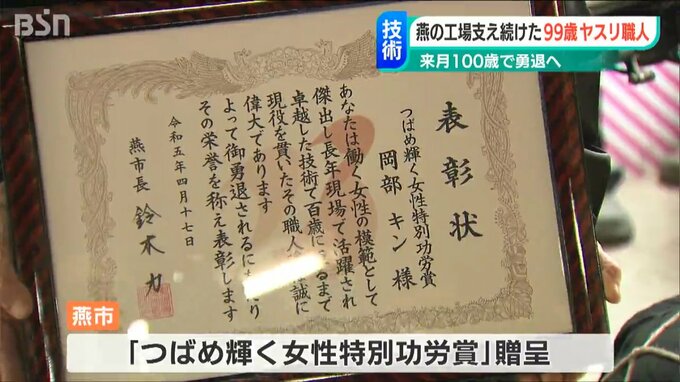 BSN
技術
燕の工場支え続けた99歳ヤスリ職人
来月100歳で勇退へ
表彰状
つばめ輝く女性特別功労賞
岡部 キン 様
あなたは働く女性の模範として
傑出し長年現場で活躍され
卓越した技術で百歳に るまで
現役を貫いたその職人 誠に
偉大であります
よって御勇退されるに たり
その栄誉を称え表彰します
令和五年四月十七日
燕市長 鈴木力
燕市
「つばめ輝く女性特別功労賞」贈呈